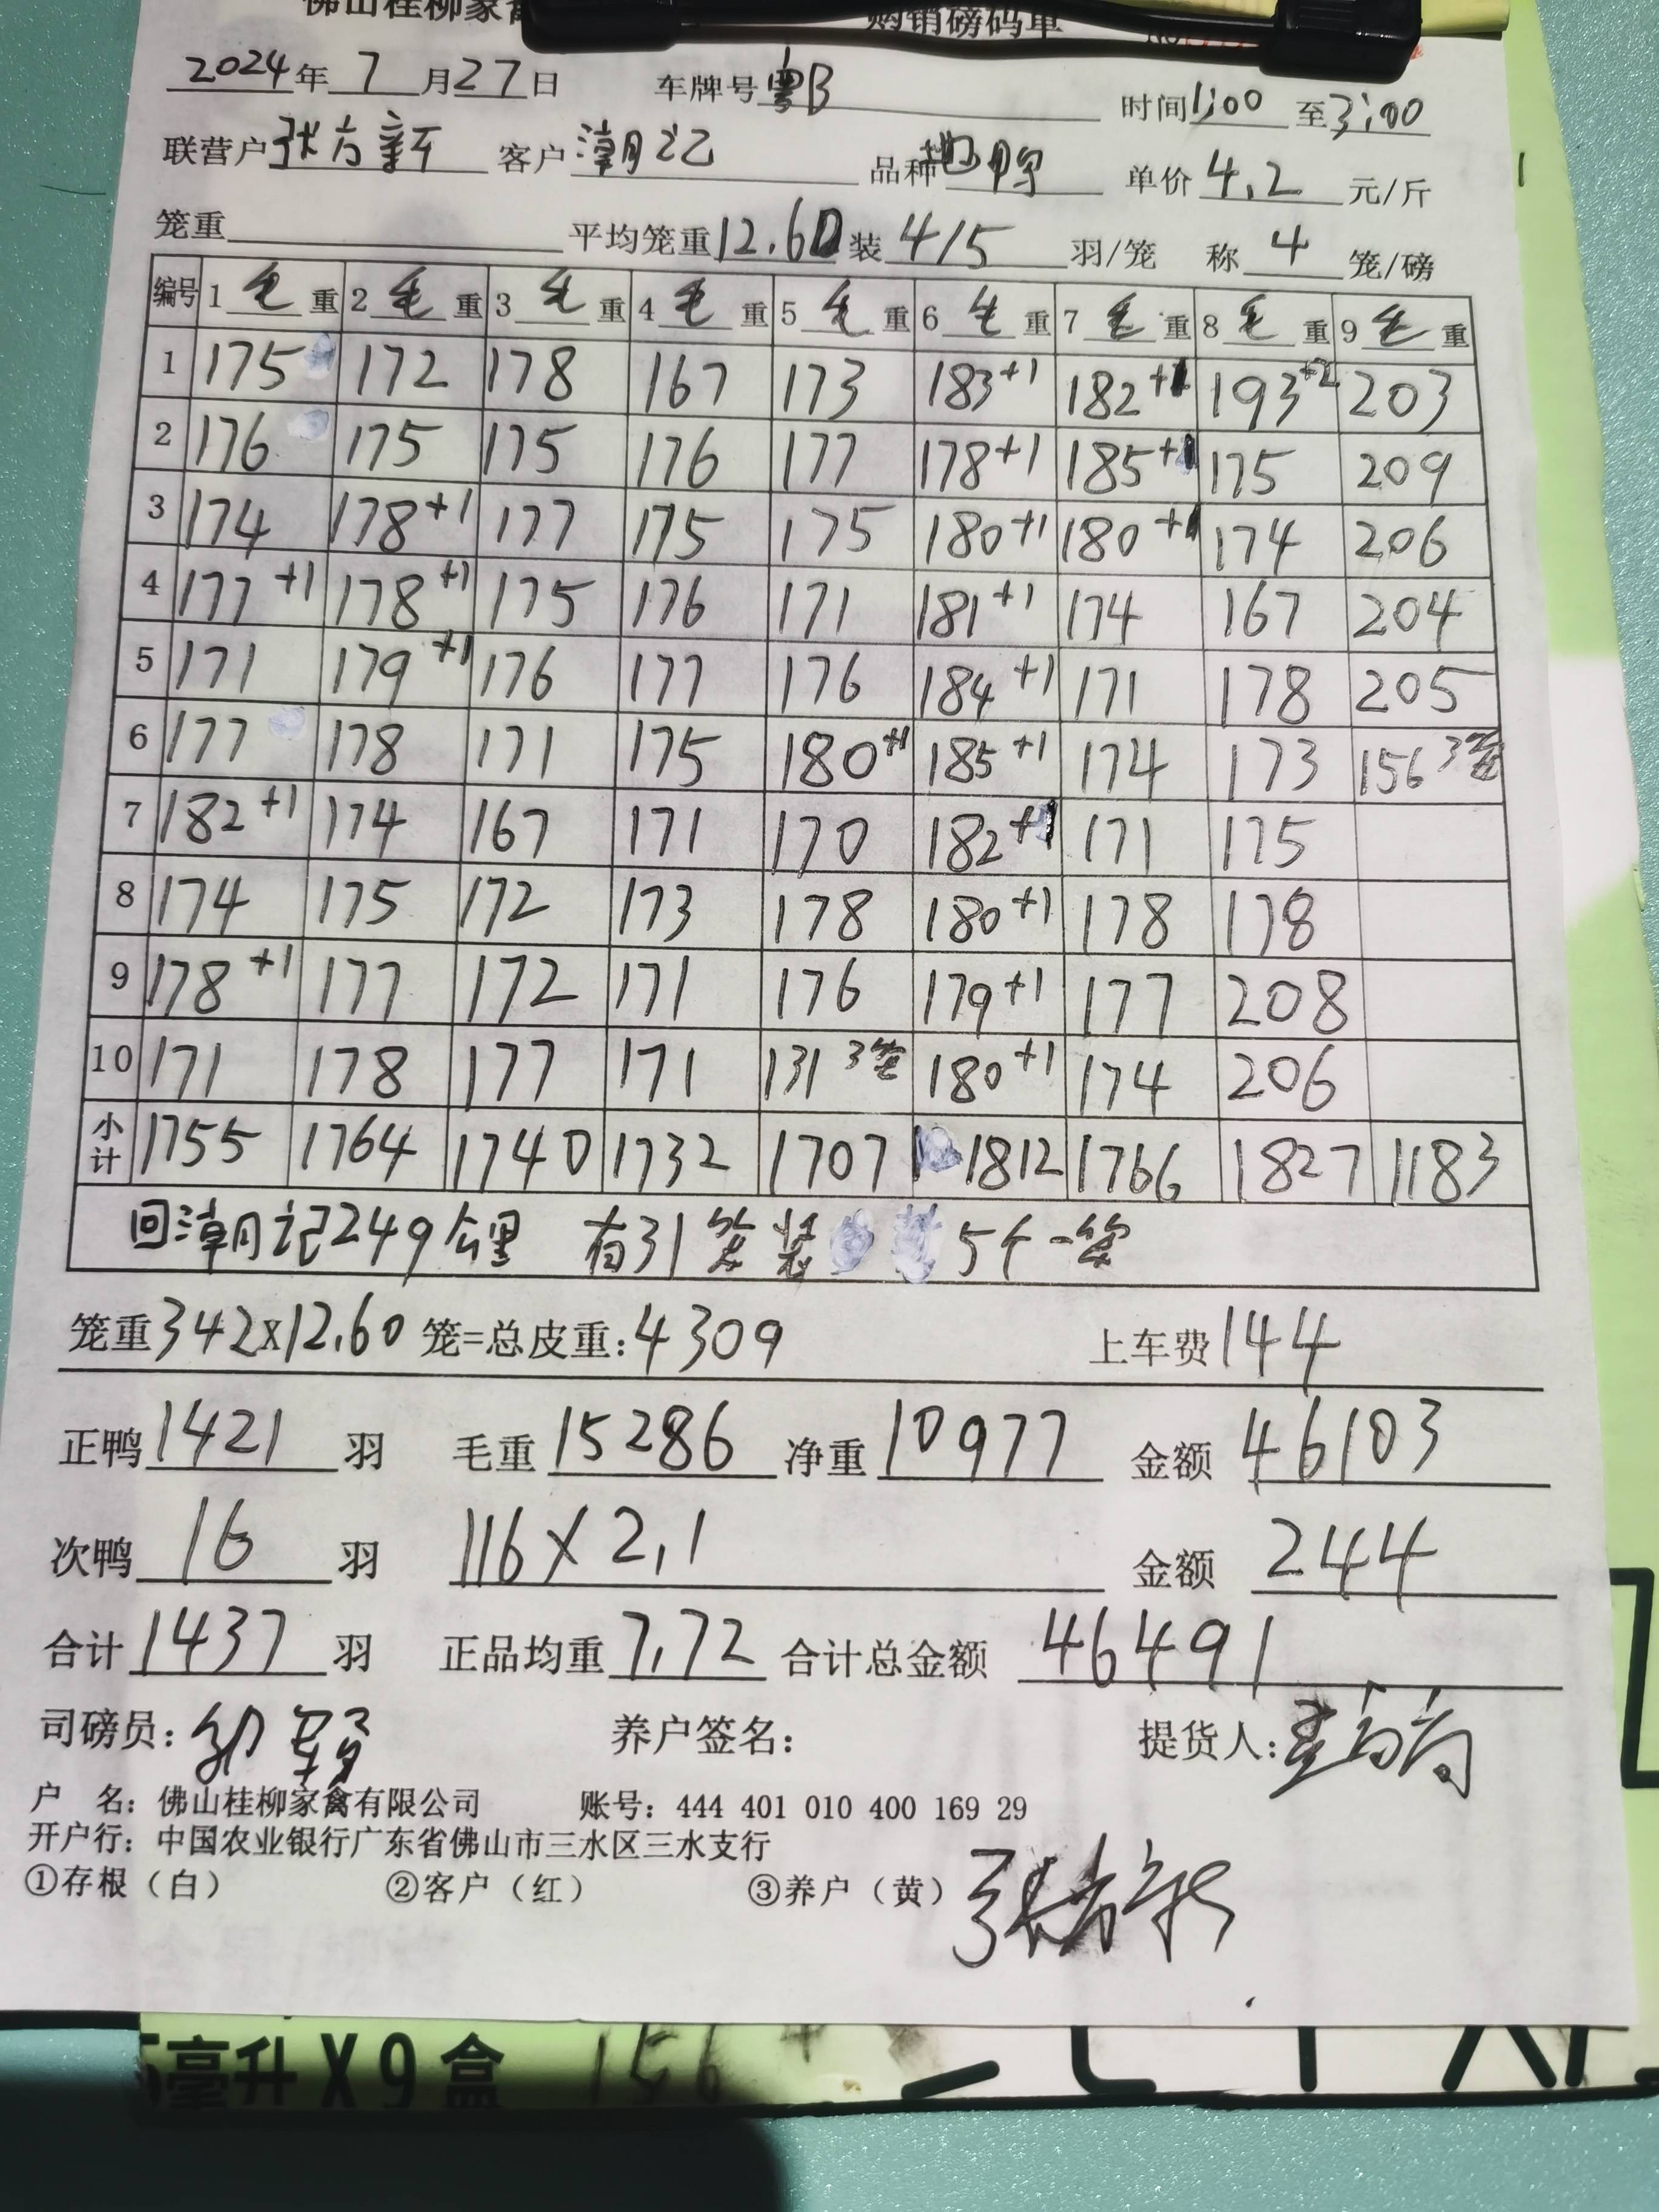 佛山桂柳家禽 购销磅码单
2024年 7 月27日 车牌号 粤B 时间1:00 至3:00
联营户 张方新 客户 潮记 品种 单价 4.2 元/斤
笼重 平均笼重12.60 装 4/5 羽/笼 称 4 笼/磅
编号 1 毛 重 2 毛 重 3 毛 重 4 毛 重 5 毛 重 6 毛 重 7 毛 重 8 毛 重 9 毛 重
1 175 172 178 167 173 183+1 182+1 193+2 203
2 176 175 175 176 177 178+1 185+1 175 209
3 174 178+1 177 175 175 180+1 180+1 174 206
4 177+1 178+1 175 176 171 181+1 174 167 204
5 171 179+1 176 177 176 184+1 171 178 205
6 177 178 171 175 180+1 185+1 174 173 156 3笼
7 182+1 174 167 171 170 182+1 171 175
8 174 175 172 173 178 180+1 178 178
9 178+1 177 172 171 176 179+1 177 208
10 171 178 177 171 131 3笼 180+1 174 206
小计 1755 1764 1740 1732 1707 1812 1766 1827 1183
回潮记249公里 有31笼装 5个一笼
笼重342x12.60 笼=总皮重:4309 上车费144
正鸭 1421 羽 毛重 15286 净重 10977 金额 46103
次鸭 16 羽 116×2.1 金额 244
合计 1437 羽 正品均重 7.72 合计总金额 46491
司磅员: 养户签名: 提货人:
户 名: 佛山桂柳家禽有限公司 账号: 444 401 010 400 169 29
开户行: 中国农业银行广东省佛山市三水区三水支行
①存根（白） ②客户（红） ③养户（黄） 张方新
毫升X9盒 156